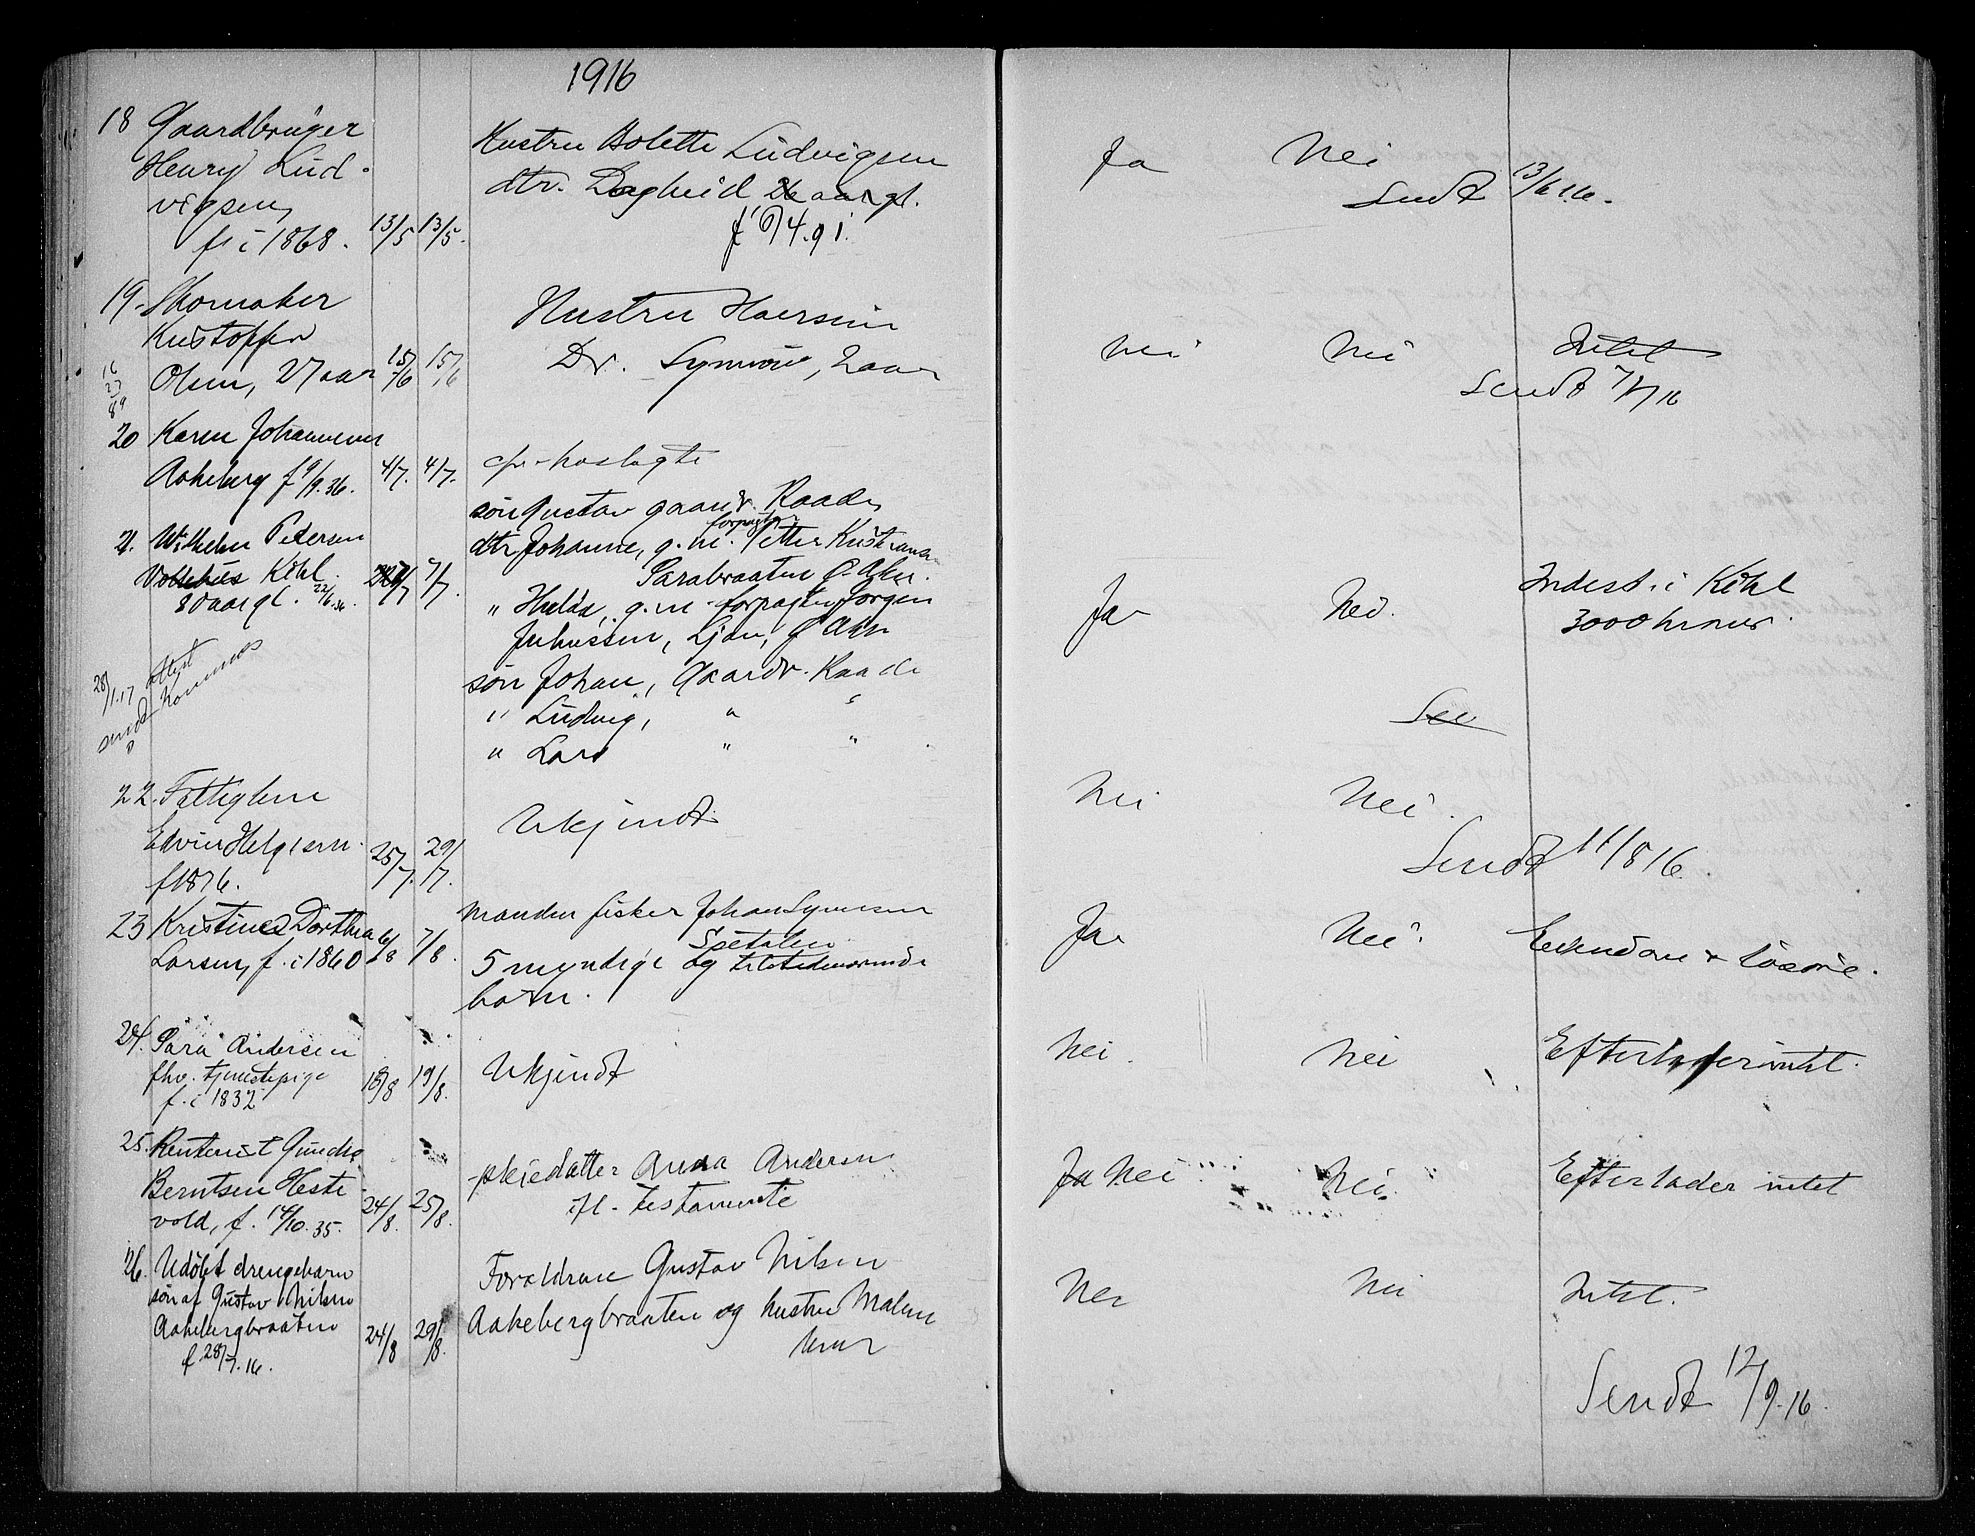 1916
18 Gaardbruger
Henry Lud-
vigsen,
f. i 1868. 13/5 13/5.
Hustru Bolette Ludvigsen
dtr. Dagheid aargl.
f 6/4.91.
Ja Nei
Sendt 13/6 16.
19. Skomaker
Kristoffer
Olsen, 27 aar 15/6 15/6
16
27
89
Hustru
Dr. Synnöve, 2 aar
Nei Nei Intet
Sendt 7/7 16
20 Karen Johannesen
Aakeberg f 9/9.36. 4/7. 4/7.
21. Wilhelm Pedersen
Kihl.
80 aar gl. 22/6.36. 7/7.
sön Gustav gaardr. Raade,
dtr Johanne, g. m. forpagter Petter Kristiansen
Sarabraaten Ö. Aker.
" Hulda, g. m. forpagter Jörgen
Juliussen, Ljan, Ö Aker
sön Johan, Gaardr. Raade
" Ludvig, " "
" Lars " "
Ja Nei. Indest. i Kihl
3000 kroner.
28/1.17 attest
sendt
22. Fattiglem
Edvin Helgesen.
f 1876. 25/7. 29/7.
Ukjendt
Nei Nei.
Sendt 11/8 16.
23 Kristine Dorthea
Larsen, f. i 1860 6/8 7/8.
Manden fisker Johan Synnesen
Spetalen
5 myndige og tilstedeværende
barn.
Ja Nei. Eiendom + lösöre.
24. Sara Andersen
fhv. tjenestepige
f. i 1832 18/8 19/8.
Ukjendt
Nei. Nei Efterlader intet.
25. Rentenist
Berntsen Heste
vold, f. 14/10.35. 24/8. 25/8.
pleiedatter Anna Andersen
ifl. testamente
Ja Nei Nei. Efterlader intet
26. Udöbt drengebarn
sön af Gustav Nilsen
Aakebergbraaten
f 28/7.16. 24/8 29/8.
Forældrene Gustav Nilsen
Aakebergbraaten og hustru
Nei Nei Intet.
Sendt 12/9.16.